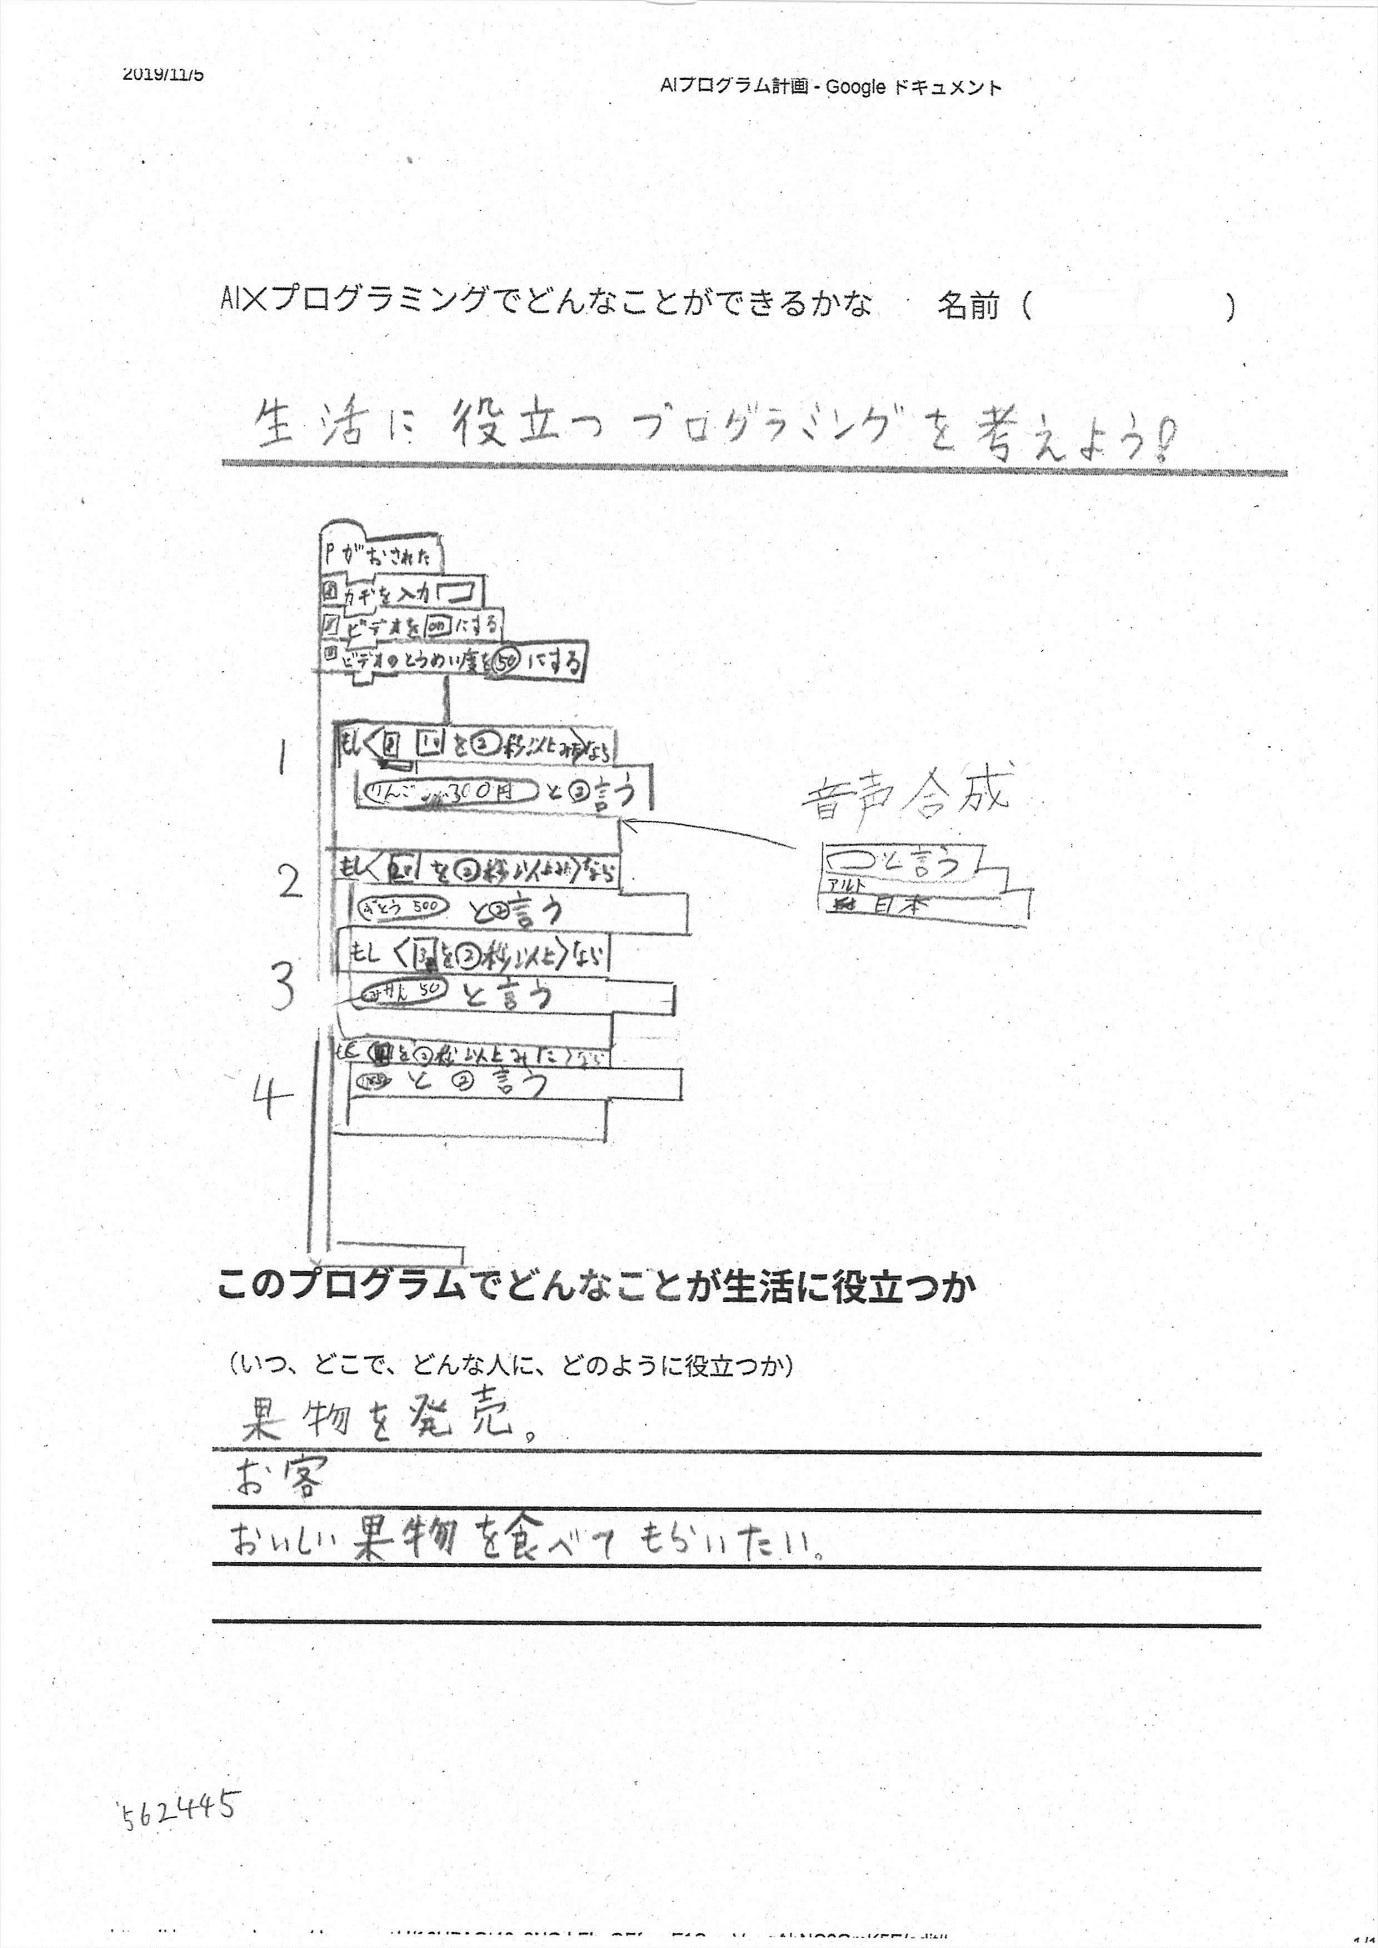 2019/11/5
AIプログラム計画 - Google ドキュメント
AI×プログラミングでどんなことができるかな 名前（ ）
生活に役立つプログラミングを考えよう!
Pがおされた
カギを入力
ビデオをonにする
ビデオのとうめい度を50にする
1
もし を②秒以上 なら
りんご 300円 と②言う
音声合成
と言う
アルト
日本
2
もし を②秒以上 なら
ぶどう 500 と②言う
3
もし を②秒以上 なら
みかん 50 と言う
4
を②秒以上みた なら
と②言う
このプログラムでどんなことが生活に役立つか
（いつ、どこで、どんな人に、どのように役立つか）
果物を発売。
お客
おいしい果物を食べてもらいたい。
562445